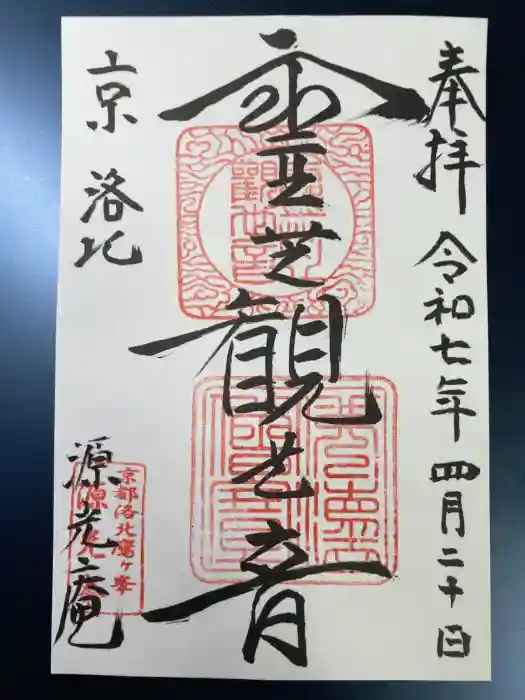 奉拝 令和七年 四月二十日
霊芝観世音
京 洛北
源光庵
京都洛北鷹ヶ峯
源光